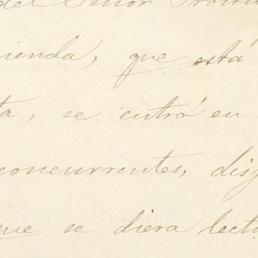 del Señor Promo
ienda, que está
ta, se entró en
concurrentes, disp
que se diera lect